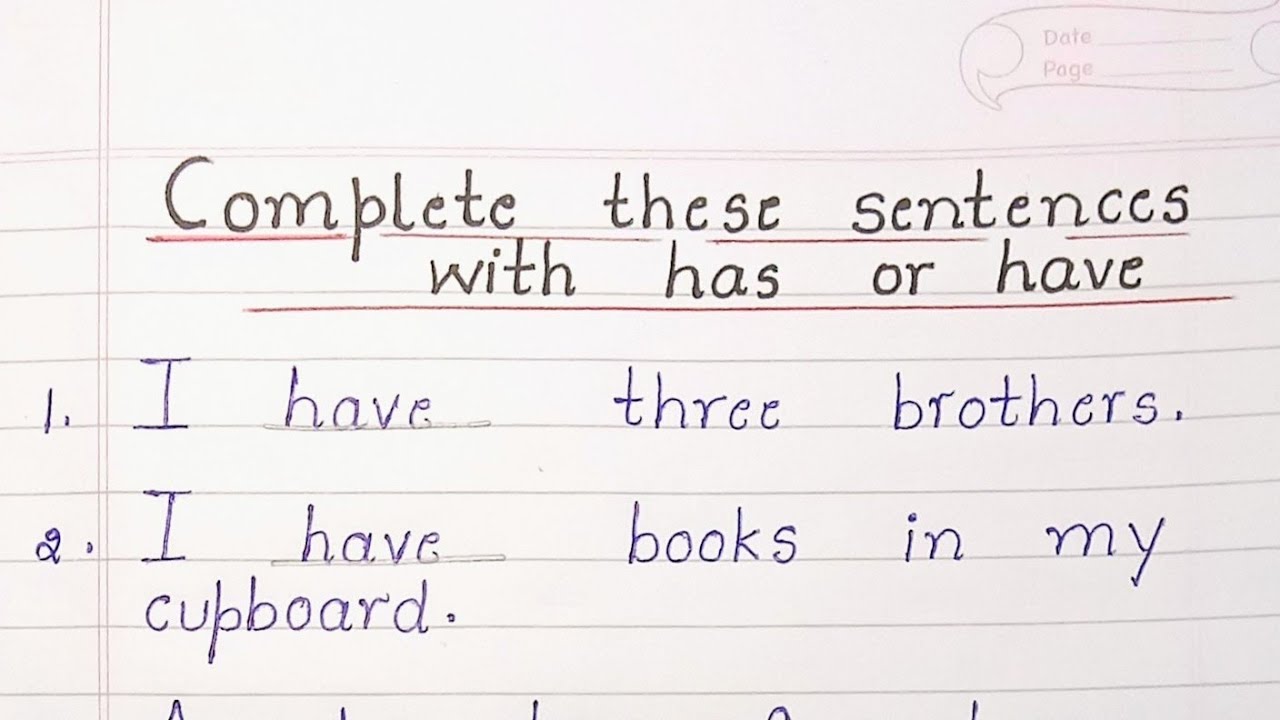 Date
Page
Complete these sentences
with has or have
1. I have three brothers.
2. I have books in my
cupboard.